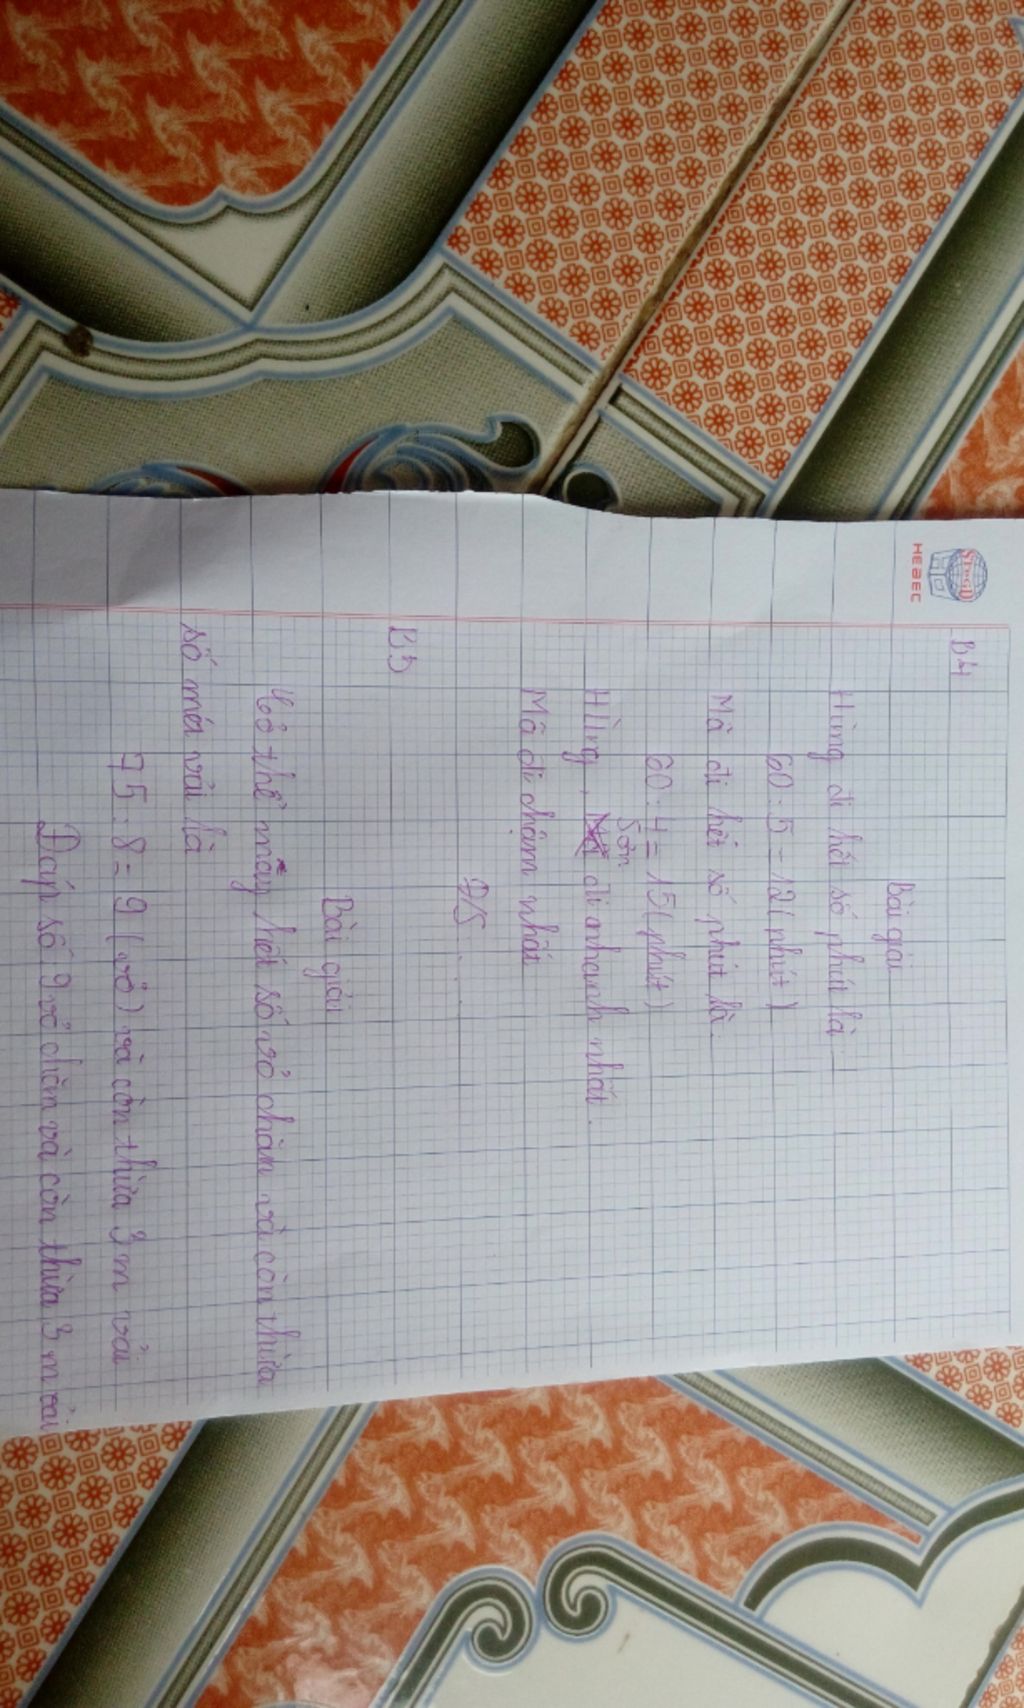 STGD
HEBEC
B4
Bài giải
Hùng đi hết số phút là:
60 : 5 = 12 (phút)
Mà đi hết số phút là:
60 : 4 = 15 (phút)
Sơn
Hùng, đi nhanh nhất.
Mà đi chậm nhất
Đ/S . . .
B5
Bài giải
Có thể may hết số vỏ chăn và còn thừa
số mét vải là
75 : 8 = 9 (vỏ) và còn thừa 3 m vải
Đáp số 9 vỏ chăn và còn thừa 3 m vải